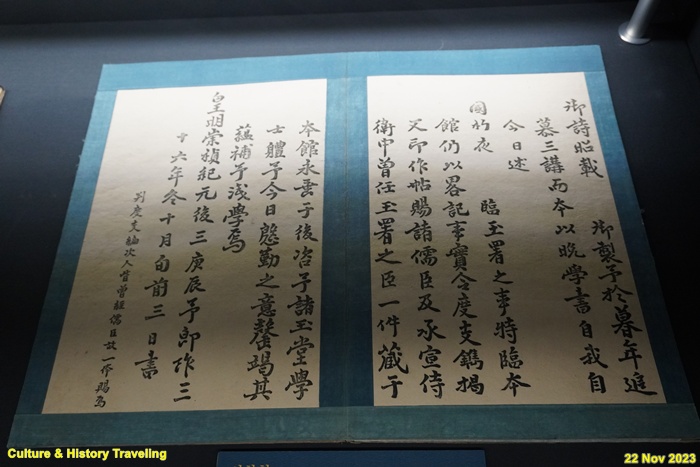 御詩昭載 御製予於暮年追
慕三講而本以晚學書自我自
今日述
國 夜 臨玉署之事特臨本
館仍以畧記事實令度支鐫揭
又即作帖賜諸儒臣及承宣侍
衛中曾任玉署之臣一件藏于
本館永垂于後咨予諸玉堂學
士體予今日慇勤之意罄竭其
蘊補予淺學焉
皇明崇禎紀元後三庚辰予即阼三
十六年冬十月旬前三日書
判度支編次人皆曾經儒臣故一件賜焉
Culture & History Traveling
22 Nov 2023